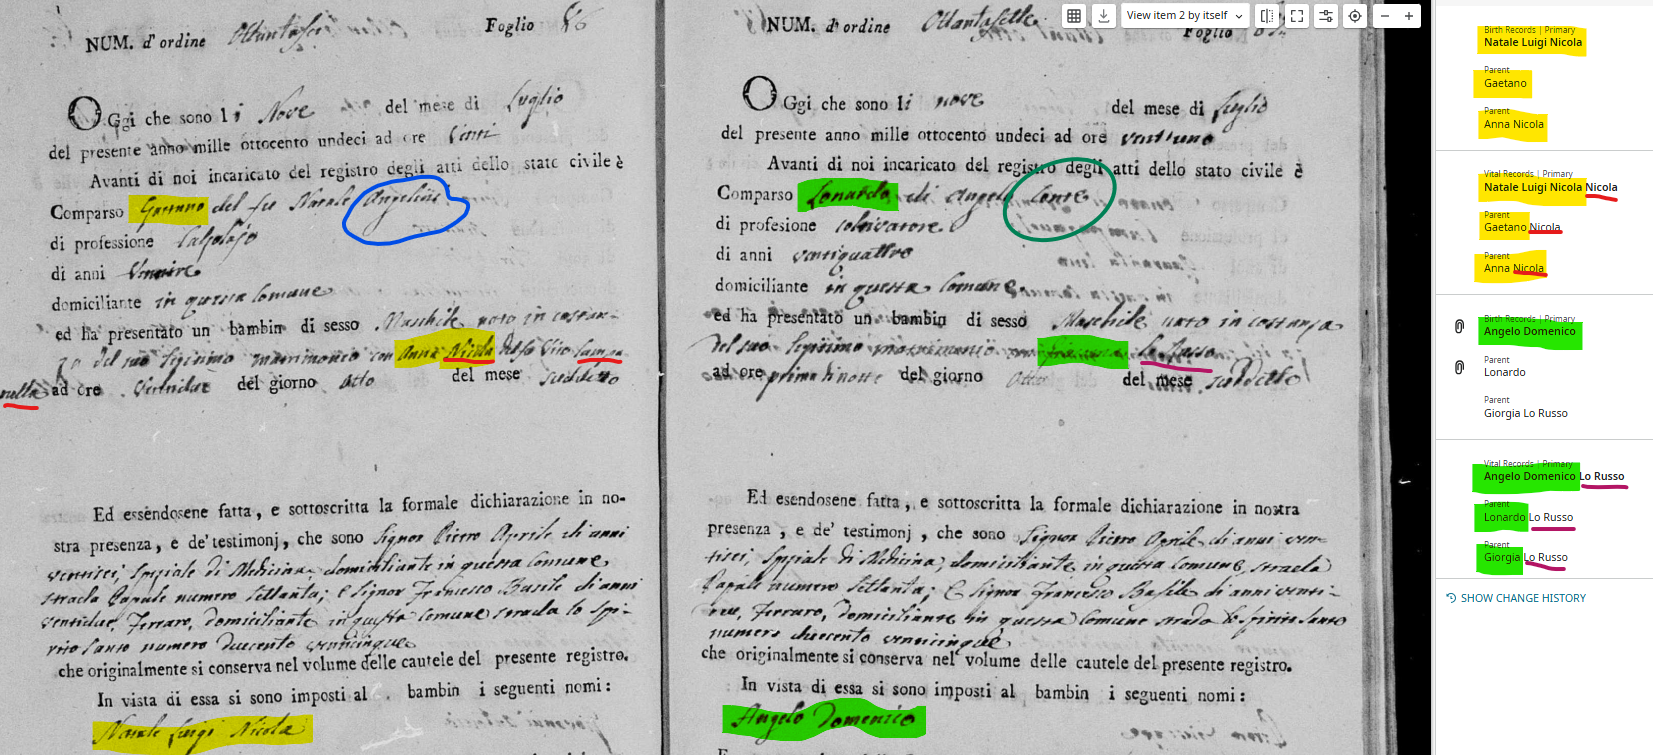 View item 2 by itself
NUM. d'ordine Ottantasei Foglio 86
OGgi che sono li Nove del mese di Luglio
del presente anno mille ottocento undeci ad ore Venti
Avanti di noi incaricato del registro degli atti dello stato civile è
Comparso Gaetano del fu Natale Angelini
di professione Calzolajo
di anni
domiciliante in questa Comune
ed ha presentato un bambin di sesso Maschile nato in costan-
za del suo legitimo matrimonio con Anna Nicola della Vito Campa-
nella ad ore Ventidue del giorno otto del mese suddetto
Ed essendosene fatta, e sottoscritta la formale dichiarazione in no-
stra presenza, e de' testimonj, che sono Signor Pietro Aprile di anni
ventisei, Speziale di Medicina, domiciliante in questa Comune
strada Capale numero Settanta; e Signor Francesco Basile di anni
ventidue, Ferraro, domiciliante in questa Comune strada lo Spi-
rito Santo numero Duecento venticinque
che originalmente si conserva nel volume delle cautele del presente registro.
In vista di essa si sono imposti al bambin i seguenti nomi:
Natale Luigi Nicola
NUM. d'ordine Ottantasette Foglio
OGgi che sono li nove del mese di Luglio
del presente anno mille ottocento undeci ad ore ventuno
Avanti di noi incaricato del registro degli atti dello stato civile è
Comparso Lonardo di Angelo Conte
di profesione Coltivatore
di anni ventiquattro
domiciliante in questa Comune
ed ha presentato un bambin di sesso Maschile nato in costanza
del suo legitimo matrimonio con lo Russo
ad ore prima di notte del giorno Otto del mese suddetto
Ed esendosene fatta, e sottoscritta la formale dichiarazione in nostra
presenza, e de' testimonj, che sono Signor Pietro Aprile di anni ven-
tisei, Speziale di Medicina, domiciliante in questa Comune, strada
Capale numero Settanta; E Signor Francesco Basile di anni venti-
due, Ferraro, domiciliante in questa Comune strada lo Spirito Santo
numero duecento venticinque
che originalmente si conserva nel volume delle cautele del presente registro.
In vista di essa si sono imposti al bambin i seguenti nomi:
Angelo Domenico
Birth Records | Primary
Natale Luigi Nicola
Parent
Gaetano
Parent
Anna Nicola
Vital Records | Primary
Natale Luigi Nicola Nicola
Parent
Gaetano Nicola
Parent
Anna Nicola
Birth Records | Primary
Angelo Domenico
Parent
Lonardo
Parent
Giorgia Lo Russo
Vital Records | Primary
Angelo Domenico Lo Russo
Parent
Lonardo Lo Russo
Parent
Giorgia Lo Russo
SHOW CHANGE HISTORY